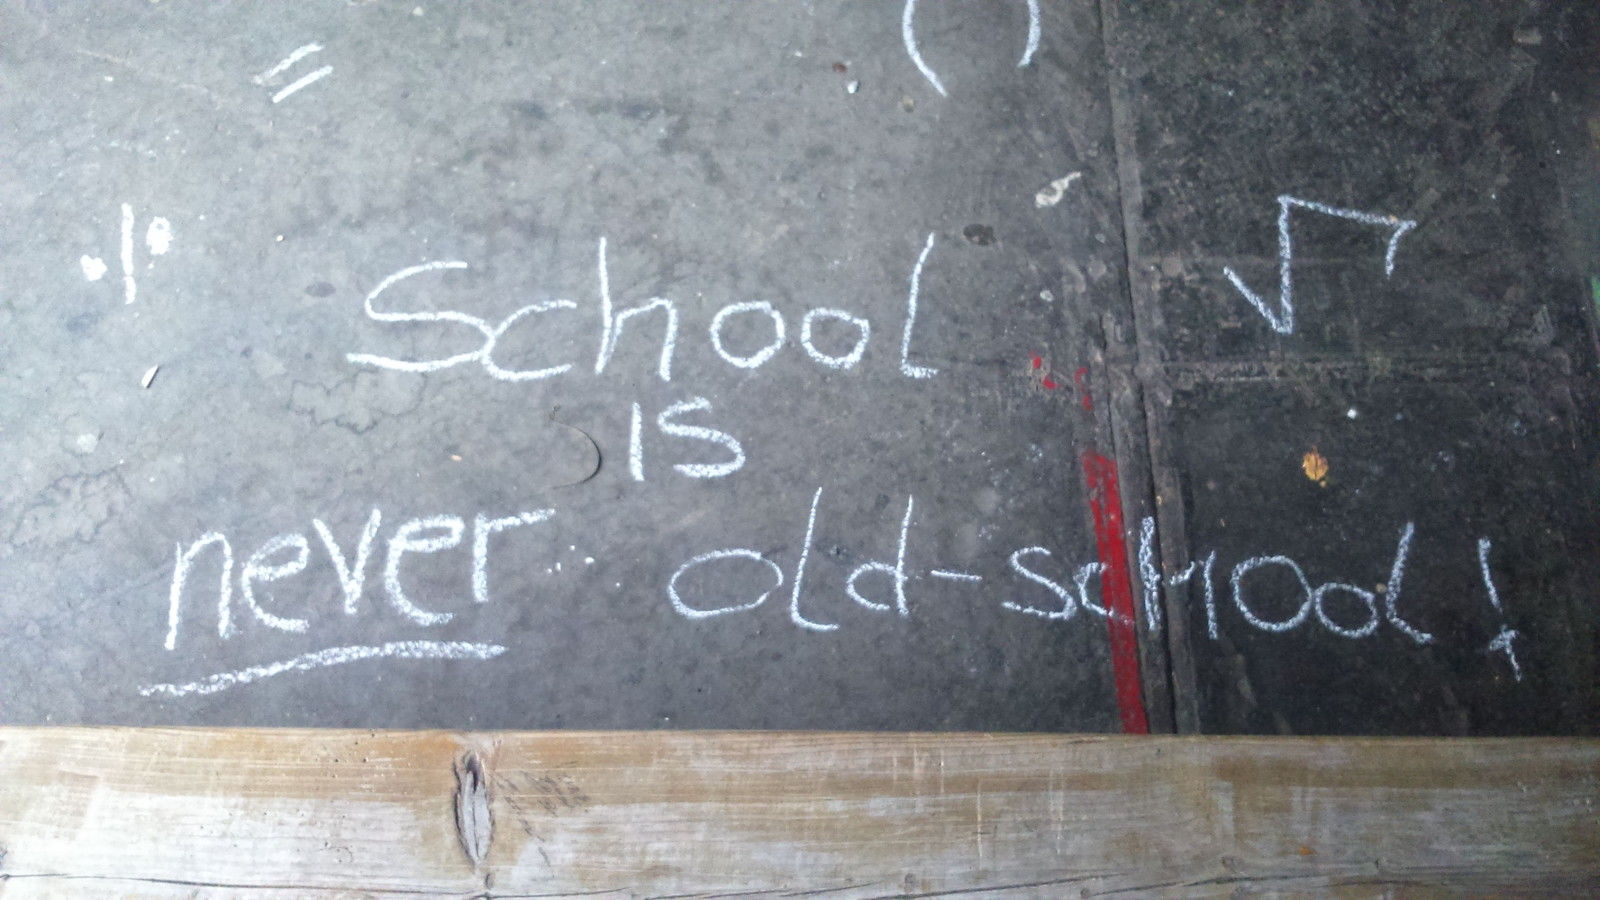 = ( )
·|· √
School
is
never old-school!